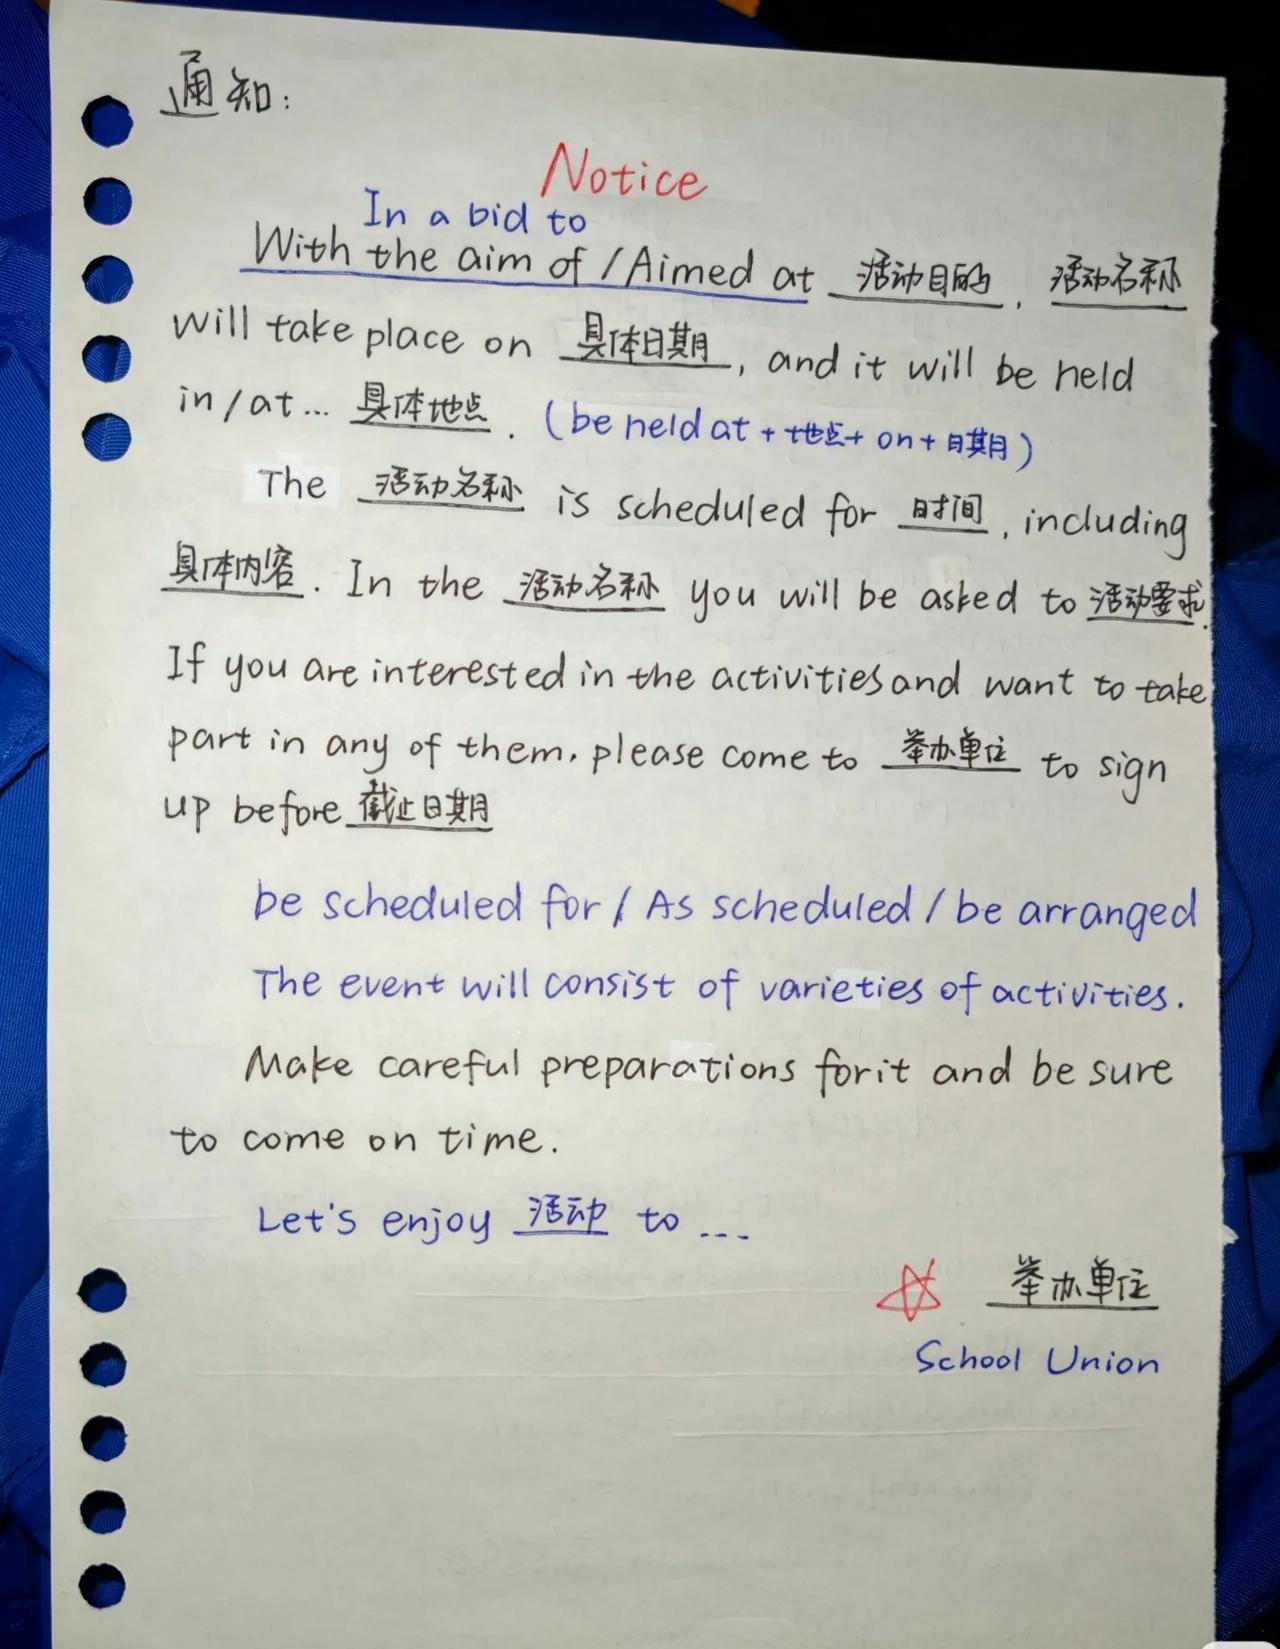 通知:
Notice
In a bid to
With the aim of / Aimed at 活动目的, 活动名称
will take place on 具体日期, and it will be held
in/at... 具体地点. (be held at + 地点 + on + 日期)
The 活动名称 is scheduled for 时间, including
具体内容. In the 活动名称 you will be asked to 活动要求.
If you are interested in the activities and want to take
part in any of them. please come to 举办单位 to sign
up before 截止日期
be scheduled for / As scheduled / be arranged
The event will consist of varieties of activities.
Make careful preparations for it and be sure
to come on time.
Let's enjoy 活动 to ...
举办单位
School Union